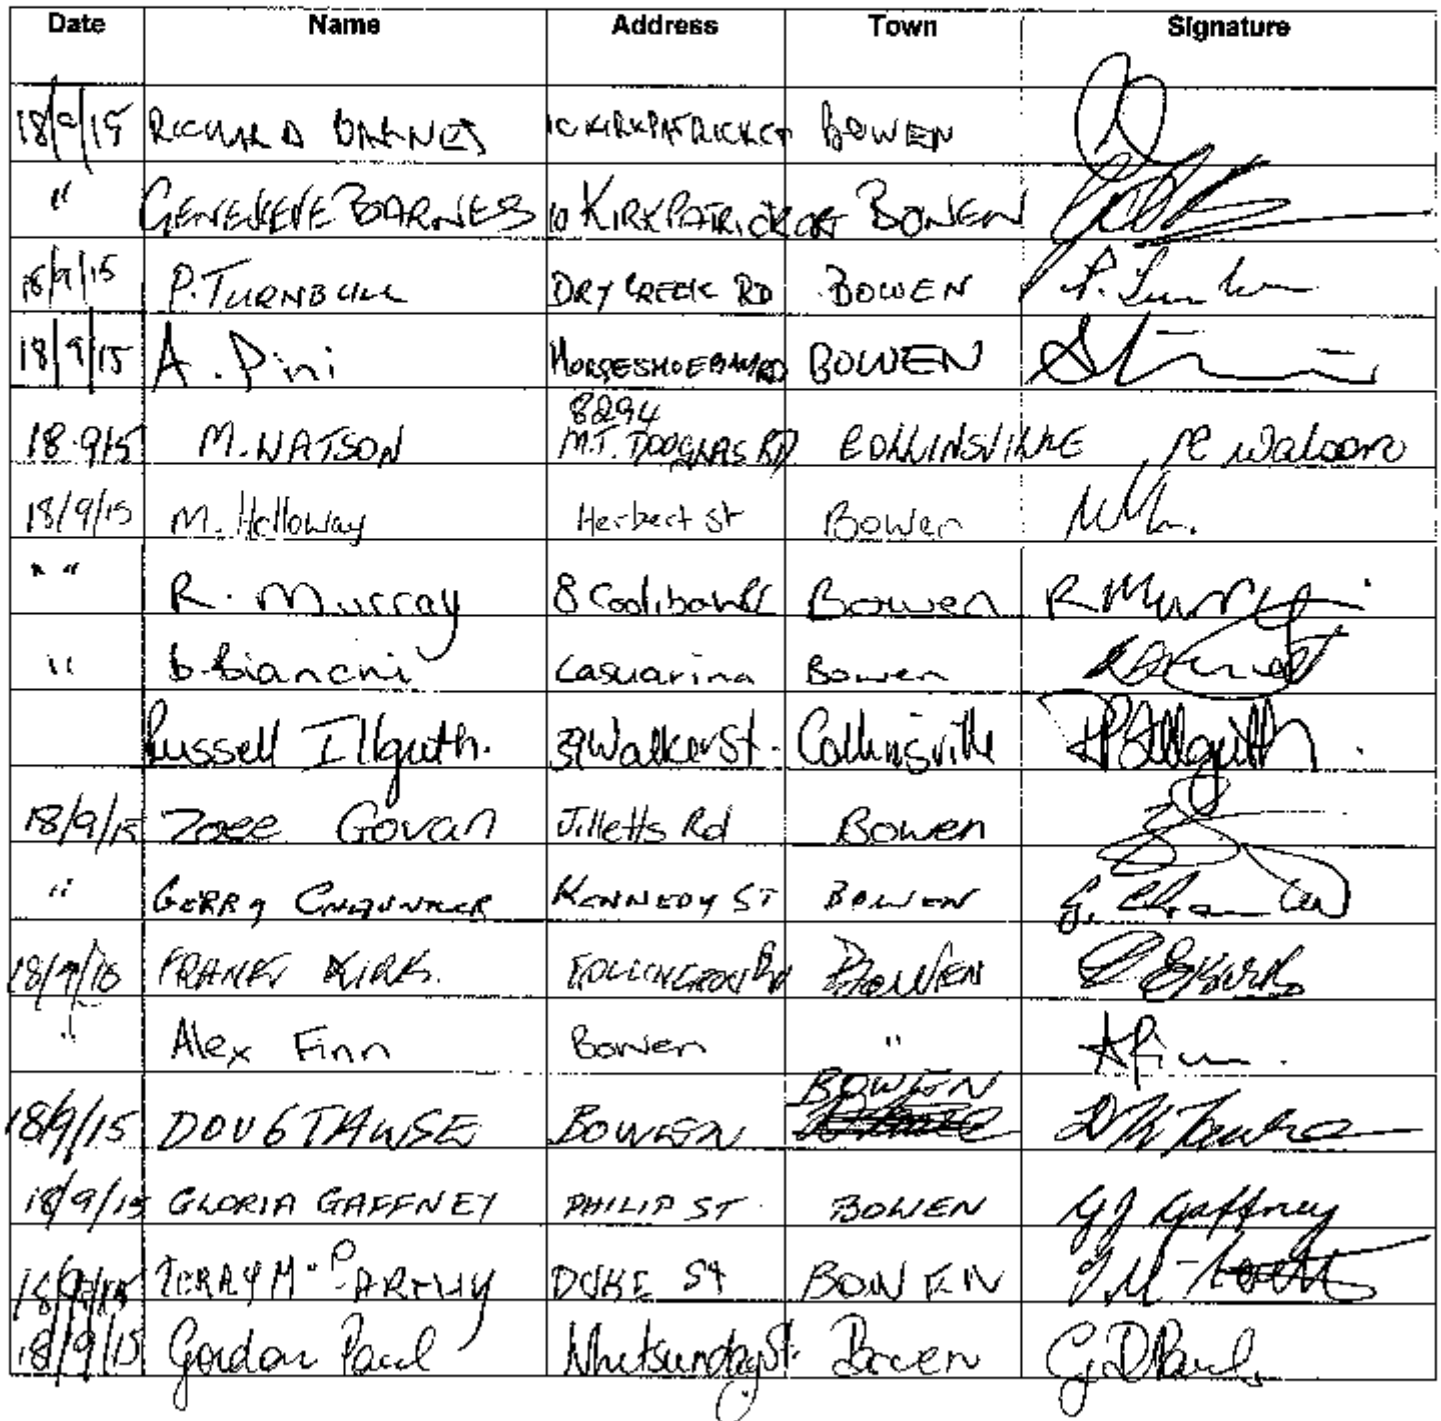 Date Name Address Town Signature
18/9/15 RICHARD BARNES 10 KIRKPATRICK CT BOWEN
" GENEVIEVE BARNES 10 KIRKPATRICK CT BOWEN
18/9/15 P. TURNBULL DRY CREEK RD BOWEN
18/9/15 A. Pini HORSESHOE BAY RD BOWEN
8294
18.9.15 M. WATSON M.T. DOUGLAS RD COLLINSVILLE M Watson
18/9/15 M. Holloway Herbert St Bowen
" " R. Murray 8 Coolibah St Bowen R Murray
" b. Bianchi Casuarina Bowen
Russell Illguth. 39 Walker St. Collinsville
18/9/15 Zoee Govan Jilletts Rd Bowen
" GERRY KENNEDY ST BOWEN
18/9/15 FRANK KIRK. BOWEN
" Alex Finn Bowen " A Finn
BOWEN
18/9/15 DOUG TAWSE BOWEN
18/9/15 GLORIA GAFFNEY PHILIP ST. BOWEN GJ Gaffney
18/9/15 TERRY DUKE ST BOWEN
18/9/15 Gordon Paul Whitsunday St. Bowen G D Paul